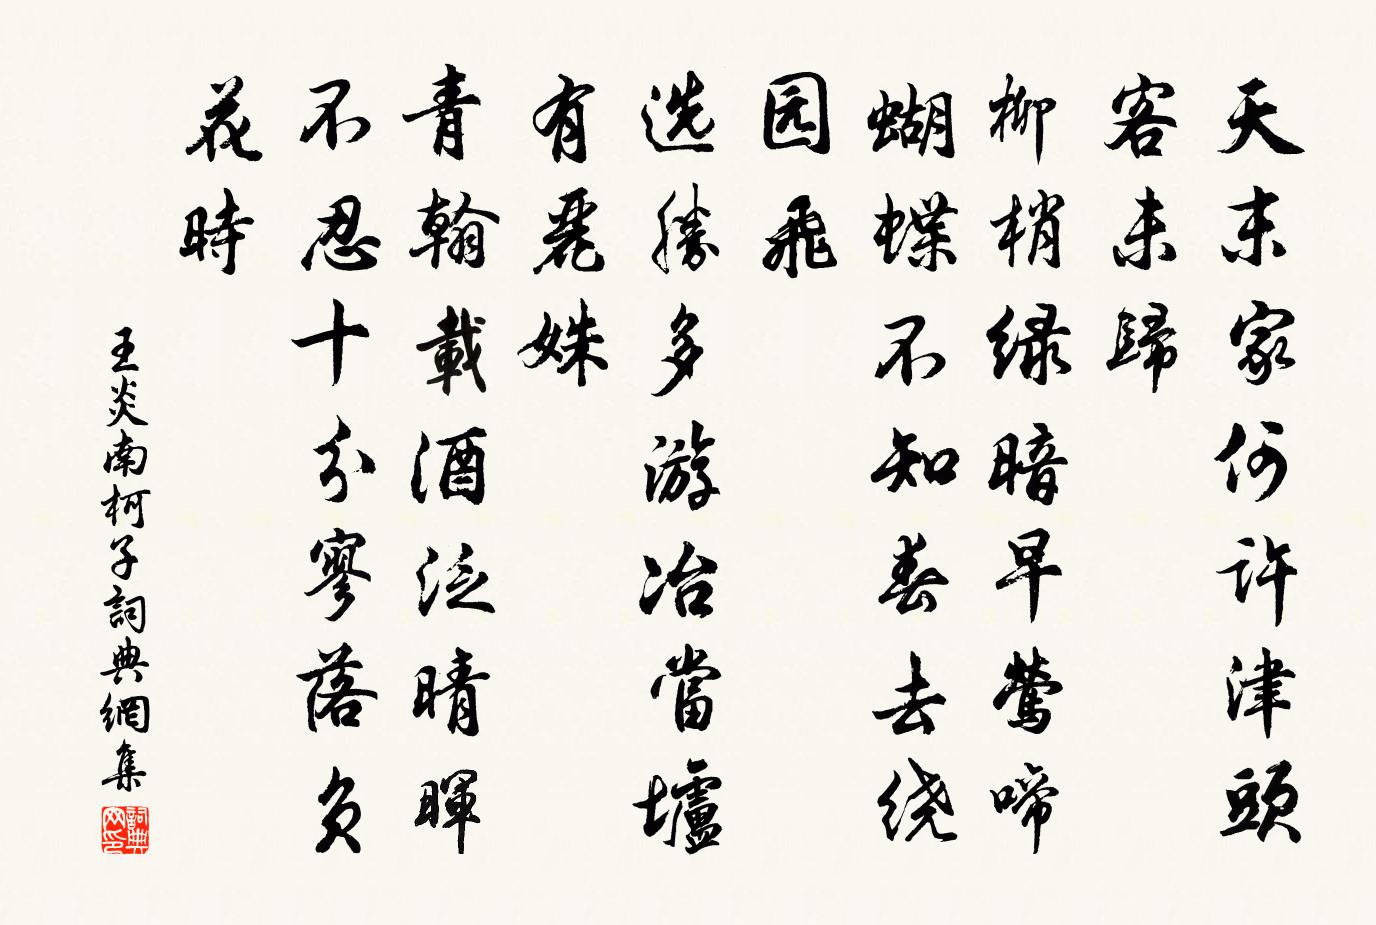 天末家何许津頭
客未歸
柳梢绿暗早莺啼
蝴蝶不知春去绕
园飛
选勝多游冶當壚
有麗姝
青翰載酒泛晴暉
不忍十分寥落负
花時
王炎南柯子詞典網集
詞典网印